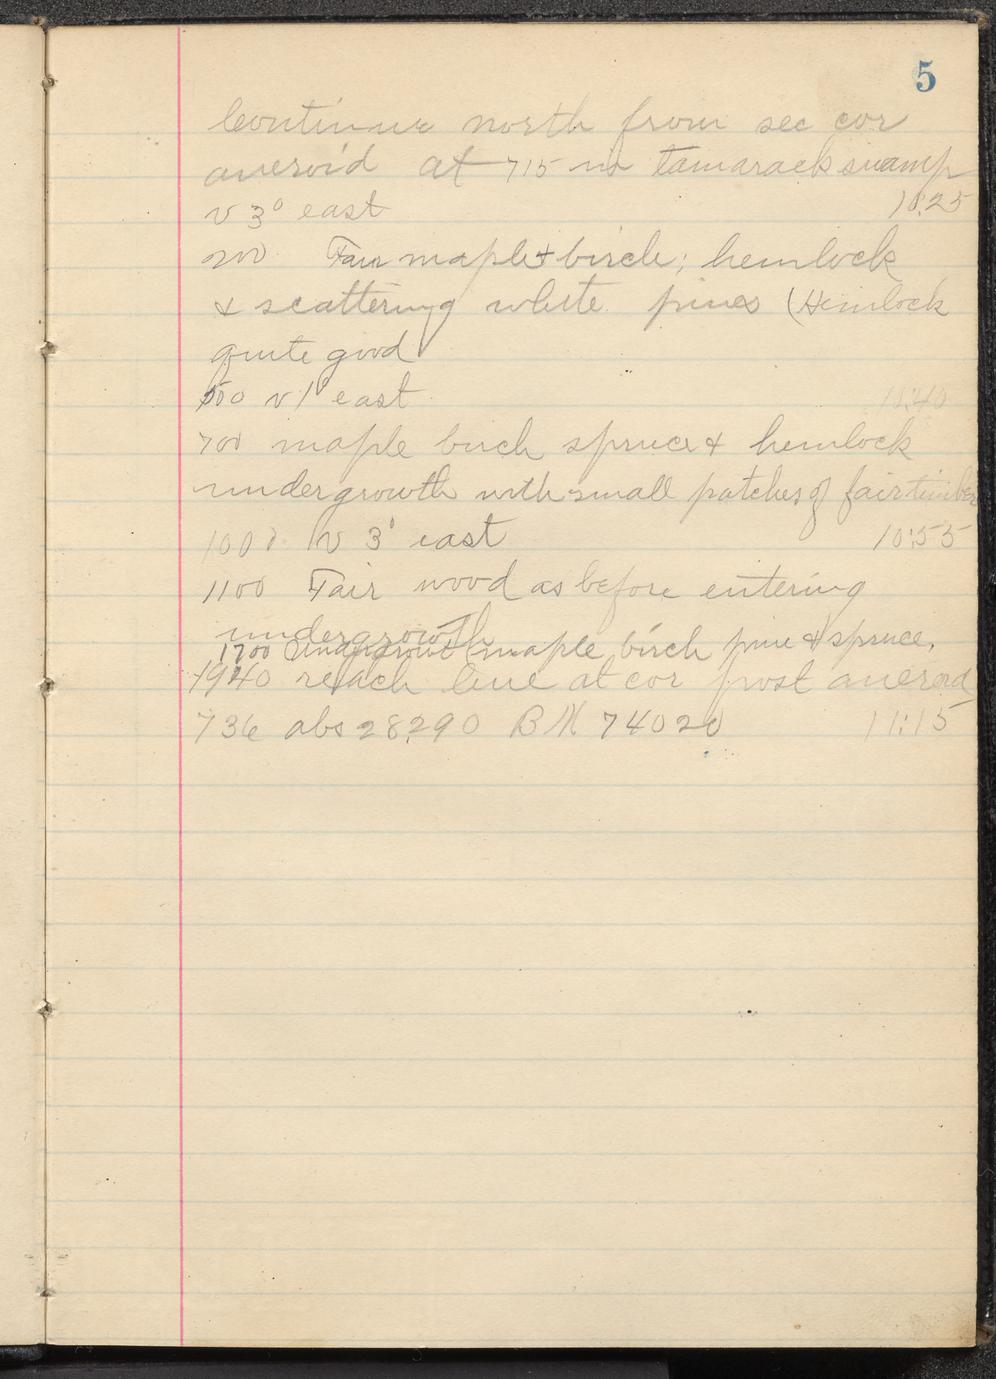 5
Continue north from sec cor
aneroid at 715 in tamarack swamp
v 3° east 10:25
200 Fair maple & birch; hemlock
& scattering white pines (Hemlock
quite good
500 v 1° east 10:40
700 maple birch spruce & hemlock
undergrowth with small patches of fair timber
1000 v 3° east 10:55
1100 Fair wood as before entering
undergrowth
1700 Undergrowth maple birch pine & spruce.
1940 reach line at cor post aneroid
736 abs 28290 BM 74020 11:15